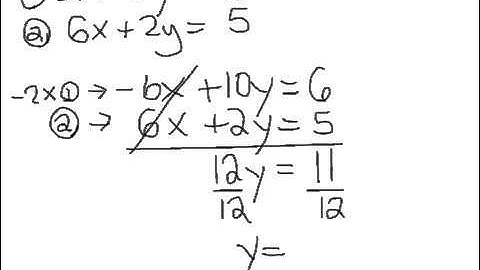 ② 6x+2y= 5
-2x① → -6x +10y=6
② → 6x +2y=5
12y = 11
12 12
y=